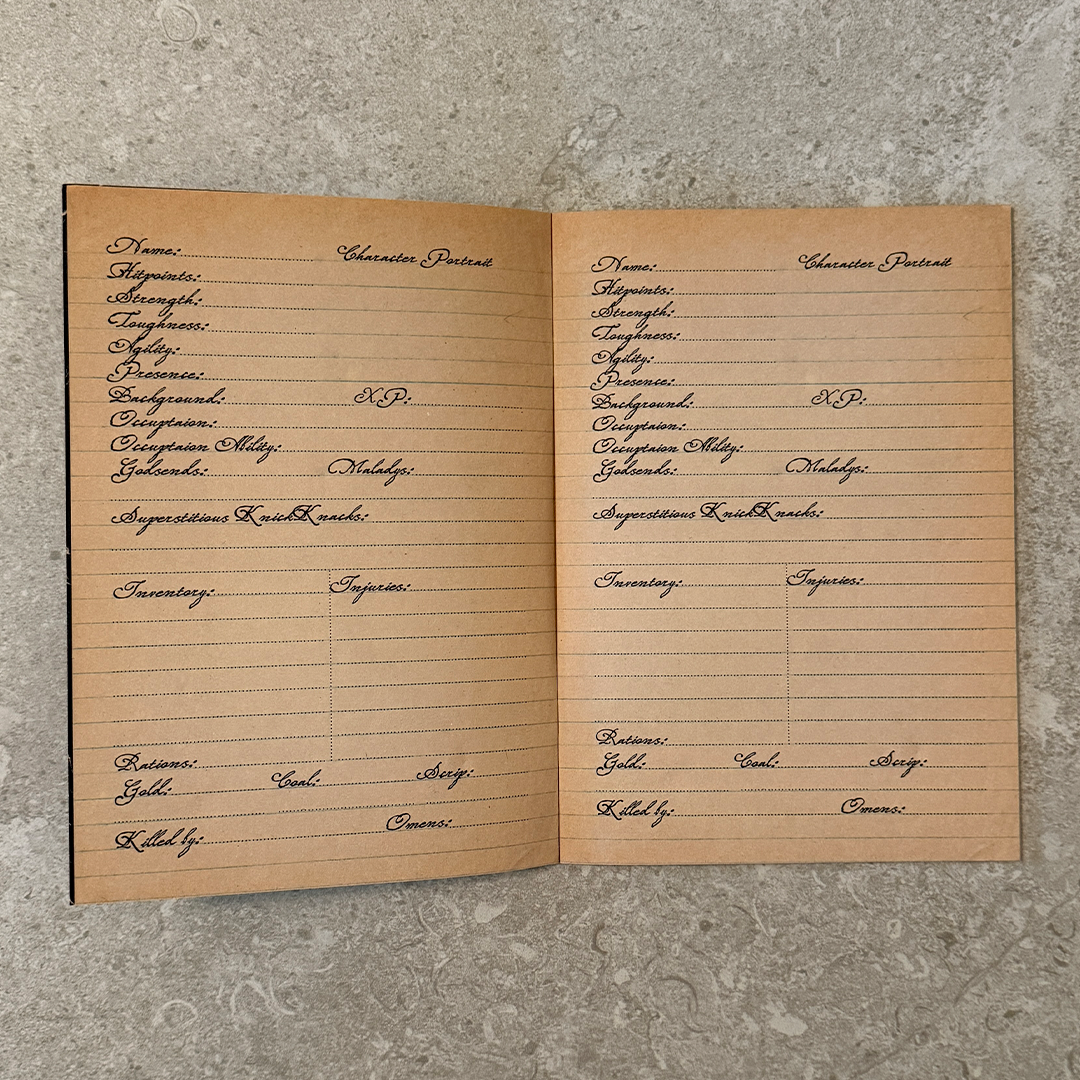 Name: Character Portrait
Hitpoints:
Strength:
Toughness:
Agility:
Presence:
Background: XP:
Occuptaion:
Occuptaion Ability:
Godsends: Maladys:
Superstitious KnickKnacks:
Inventory: Injuries:
Rations:
Gold: Coal: Scrip:
Killed by: Omens:
Name: Character Portrait
Hitpoints:
Strength:
Toughness:
Agility:
Presence:
Background: XP:
Occuptaion:
Occuptaion Ability:
Godsends: Maladys:
Superstitious KnickKnacks:
Inventory: Injuries:
Rations:
Gold: Coal: Scrip:
Killed by: Omens: